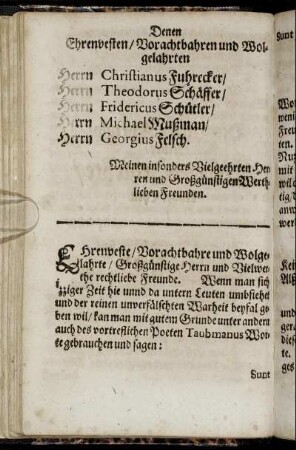 Denen
Ehrenvesten/ Vorachtbahren und Wol-
gelahrten
Herrn Christianus Fuhrecker/
Herrn Theodorus Schäffer/
Herrn Fridericus Schütler/
Herrn Michael Mußman/
Herrn Georgius Felsch.
Meinen insonders Vielgeehrten Her
ren und Großgünstigen Werth
lieben Freunden.
EHrenveste/ Vorachtbahre und Wolge
lahrte/ Großgünstige Herrn und Vielwer
the rechtliebe Freunde. Wenn man sich
itziger Zeit hie unnd da untern Leuten umbsiehet
und der reinen unverfälschten Warheit beyfal ge
ben wil/ kan man mit gutem Grunde unter andern
auch des vortreflichen Poeten Taubmanus Wor
te gebrauchen und sagen:
Sunt
Sunt